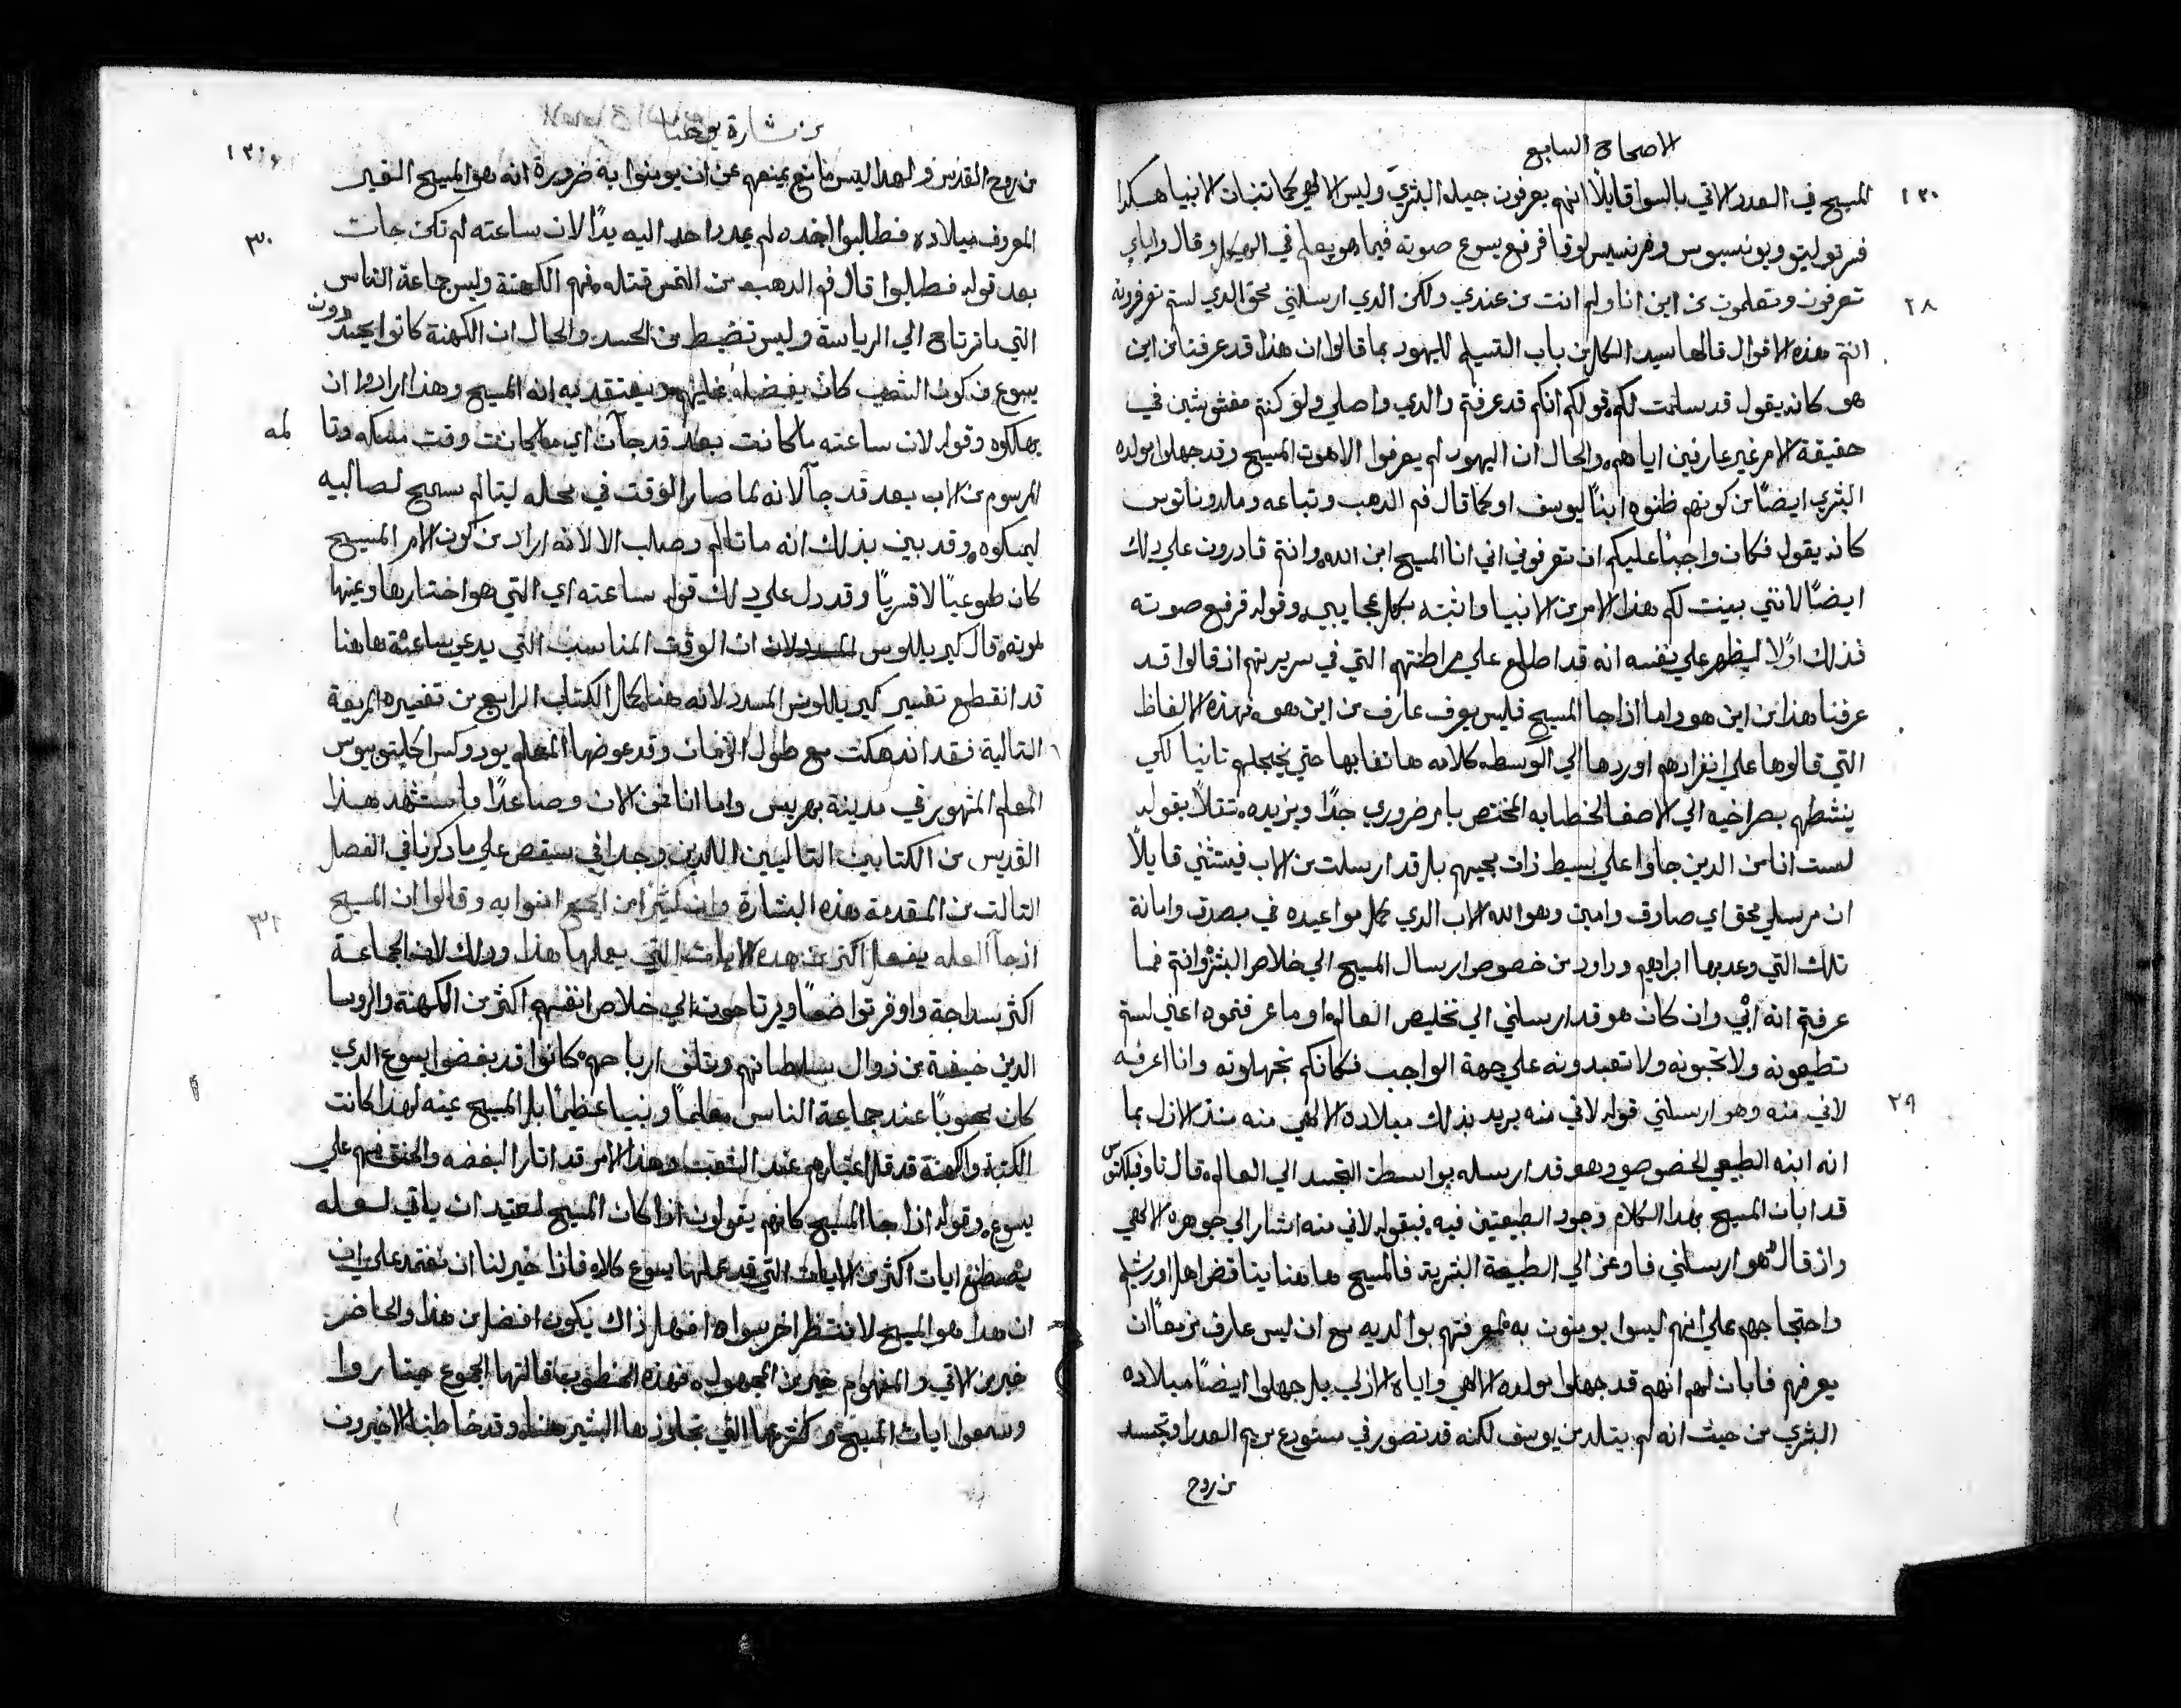 الاصحاح السابع
١٣٠
المسيح في العدد الاتي بالسوا قايلاً انهم يعرفون جيله البشري وليس الالهي كما تنبات الانبيا هكذا
فرتوليتو ويونسيوس وفرنسيس لوقا فرفع يسوع صوته فيما هو يعلم في الهيكل وقال واياي
٢٨
تعرفون وتعلمون من اين انا ولم انت من عندي ولكن الدي ارسلني محق الدي لستم تعرفونه
انتم هذه الاقوال قالها سيد الكل من باب التسليم لليهود بما قالوا ان هذا قد عرفنا من اين
هو كانه يقول قد سلمت لكم قولكم انكم قد عرفتم والدي واصلي ولو كنتم مغشوشين في
حقيقة الامر غير عارفين اياهم والحال ان اليهود لم يعرفوا الاهوت المسيح وقد جهلوا مولده
البشري ايضًا من كونهم ظنوه ابنًا ليوسف او كما قال فم الدهب وتباعه وملدوناتوس
كانه يقول فكان واجبًا عليكم ان تعرفوني اني انا المسيح ابن الله وانتم قادرون علي دلك
ايضًا لانني بينت لكم هذا الامر من الانبيا واثبته بكل عجايبي وقوله فرفع صوته
فذلك اولاً ليظهر علي نفسه انه قد اطلع علي مراطنتهم التي في سريرتهم اذ قالوا قد
عرفنا هذا من اين هو واما اذا جا المسيح فليس يعرف عارف من اين هو فهذه الالفاظ
التي قالوها علي انفرادهم اوردها الي الوسط كلامه هاتفا بها حتي يخجلهم تانيا لكي
ينشطهم بصراخيه الي الاصغا لخطابه المختص بامر ضروري جدًا ويزيده ثقلاً بقوله
لست انا من الدين جاوا علي بسيط ذات مجيهم بل قد ارسلت من الاب فيستثني قايلاً
ان مرسلي محق اي صادق وامين وهو الله الاب الدي كمل مواعيده في بصدق وامانة
تلك التي وعد بها ابراهيم وداود من خصوص ارسال المسيح الي خلاص البشر وانتم فما
عرفتم انه ابي وان كان هو قد ارسلني الي تخليص العالم او ما عرفتموه اعني لستم
تطيعونه ولا تحبونه ولا تعبدونه علي جهة الواجب فكانكم تجهلونه وانا اعرفه
٢٩
لاني منه وهو ارسلني قوله لاني منه يريد بذلك ميلاده الالهي منه منذ الازل بما
انه ابنه الطبيعي الخصوصي وهو قد ارسله بواسطة التجسد الي العالم قال تاوفيلكتوس
قد ابان المسيح بهدا الكلام وجود الطبعتين فيه فبقوله لاني منه اشار الي جوهره الالهي
واذ قال هو ارسلني فاوعز الي الطبيعة البشرية فالمسيح هاهنا يناقض اهل اورشليم
واحتجاجهم علي انهم ليسوا يومنون به لمعرفتهم بوالديه مع ان ليس عارف ان
يعرفهم فابان لهم انهم قد جهلوا مولده الالهي واياه الازلي بل جهلوا ايضًا ميلاده
البشري من حيث انه لم يتلد من يوسف لكنه قد تصور في مستودع مريم العدرا وتجسد
من روح
من بشارة يوحنا
من روح القدس ولهدا ليس مانع يمنعهم عن ان يومنوا به ضرورة انه هو المسيح الغير
٣٠
المعروف ميلاده فطلبوا اخده لم يمدد احد اليه يدًا لان ساعته لم تكن جات
بعد قوله فطلبوا قال فم الدهب من التمس قتله منهم الكهنة وليس جماعة الناس
التي ما ترتاح الي الرياسة وليس تضبط من الحسد والحال ان الكهنة كانوا يحسدون
يسوع من كون الشعب كان يفضله عليهم ويعتقد به انه المسيح وهذا ارادوا ان
يهلكوه وقوله لان ساعته ما كانت بعد قد جآت اي ما كانت وقت مسكه وقتا
المرسوم من الاب بعد قد جآ لانه لما صار الوقت في محله ليتالم سمح لصالبيه
ليمسكوه وقد بين بذلك انه ما تالم وصلب الا لانه اراد من كون الامر المسيح
كان طوعيًا لا قسريًا وقد دل علي دلك قوله ساعته اي التي هو اختارها وعينها
لموته قال كيريللوس ان الوقت المناسب التي يدعي ساعته هاهنا
قد انقطع تفسير كيريللوس المسدد لانه هنا كمال الكتاب الرابع من تفسيره
التالية فقد اندهكت مع طول الازمان وقد عوضها المعلم يودوكس اخليتوبيوس
المعلم المشهور في مدينة بهريس واما انا فمن الان وصاعدًا ما استشهد هذا
القديس من الكتابين التاليين اللدين وجداني سيقص علي ما دكرنا في الفصل
٣١
التالت من المقدمة هذه البشارة وان كثيرًا من الجمع امنوا به وقالوا ان المسيح
اذ جآ العله يفعل اكثر من هده الايات التي يعملها هذا ودلك لان الجماعة
اكثر سداجة واوفر تواضعًا ويرتاحون الي خلاص انفسهم اكثر من الكهنة والروسا
الدين خيفية من زوال سلطانهم وتلف ارباحهم كانوا قد بغضوا يسوع الدي
كان محبوبًا عند جماعة الناس معلمًا ونبيا عظيمًا بل المسيح عينه لهذا كانت
الكتبة والكهنة قد قل اعتبارهم عند الشعب وهذا الامر قد اثار البغضه والحنق منهم علي
يسوع وقوله اذا جا المسيح كانهم يقولون اذا كان المسيح لعتيد ان ياتي لعله
يصطنع ايات اكثر من الايات التي قد عملها يسوع كلا فاذا خير لنا ان نعتمد علي ان
ان هدا هو المسيح لا ننتظر اخر سواه افهل ذاك يكون افضل من هذا والحاضر
خير من الاتي والمفهوم خير من المجهول فهذه المنطوقات قالتها الجموع حينا راوا
وسمعوا ايات المسيح من كثرتها التي تجاوزها البشير هنا وقد خاطبنا الاخيرون